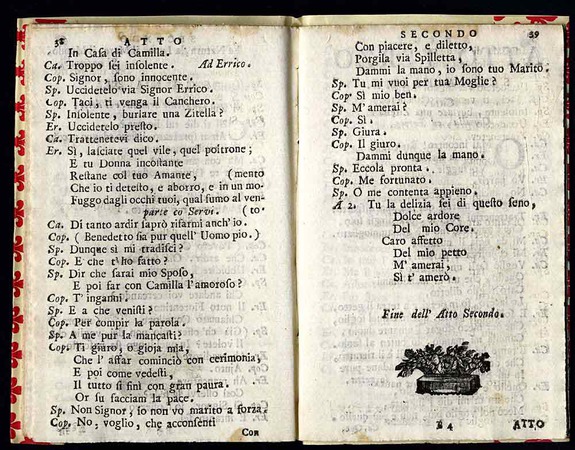 38 ATTO
In Casa di Camilla.
Ca. Troppo sei insolente. Ad Errico.
Cop. Signor, sono innocente.
Sp. Uccidetelo via Signor Errico.
Cop. Taci, ti venga il Canchero.
Sp. Insolente, burlare una Zitella?
Er. Uccidetelo presto.
Ca. Trattenetevi dico.
Er. Sì, lasciate quel vile, quel poltrone;
E tu Donna incostante
Restane col tuo Amante, (mento
Che io ti detesto, e aborro, e in un mo-
Fuggo dagli occhi tuoi, qual fumo al ven-
parte co Servi. (to.
Ca. Di tanto ardir saprò rifarmi anch' io.
Cop. ( Benedetto sia pur quell' Uomo pio.)
Sp. Dunque sì mi tradisci?
Cop. E che t'ho fatto?
Sp. Dir che sarai mio Sposo,
E poi far con Camilla l'amoroso?
Cop. T' inganni.
Sp. E a che venisti?
Cop. Per compir la parola.
Sp. A me pur la mancasti?
Cop. Ti giuro, o gioja mia,
Che l' affar cominciò con cerimonia,
E poi come vedesti,
Il tutto si finì con gran paura.
Or su facciam la pace.
Sp. Non Signor, io non vo marito a forza.
Cop. No, voglio, che acconsenti
Con
SECONDO 39
Con piacere, e diletto,
Porgila via Spilletta,
Dammi la mano, io sono tuo Marito.
Sp. Tu mi vuoi per tua Moglie?
Cop. Sì mio ben.
Sp. M' amerai?
Cop. Sì.
Sp. Giura.
Cop. Il giuro.
Dammi dunque la mano.
Sp. Eccola pronta.
Cop. Me fortunato.
Sp. O me contenta appieno.
A 2. Tu la delizia sei di questo seno,
Dolce ardore
Del mio Core.
Caro affetto
Del mio petto
M' amerai,
Sì t' amerò.
Fine dell' Atto Secondo.
E 4 ATTO